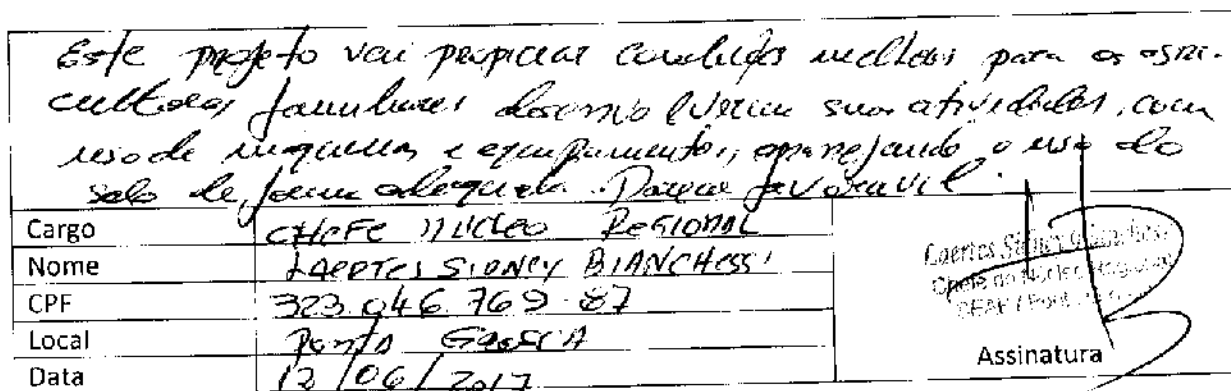 Este projeto vai propiciar condições melhores para os agri-
cultores familiares desenvolverem suas atividades, com
uso de maquinas e equipamentos, manejando o uso do
solo de forma adequada. Parecer favoravel.
Cargo CHEFE NÚCLEO REGIONAL
Nome LAERTES SIDNEY BIANCHESSI
CPF 323.046.769-87
Local PONTA GROSSA
Data 12/06/2017
Laertes Sidney Bianchessi
Chefe do Núcleo Regional
Assinatura